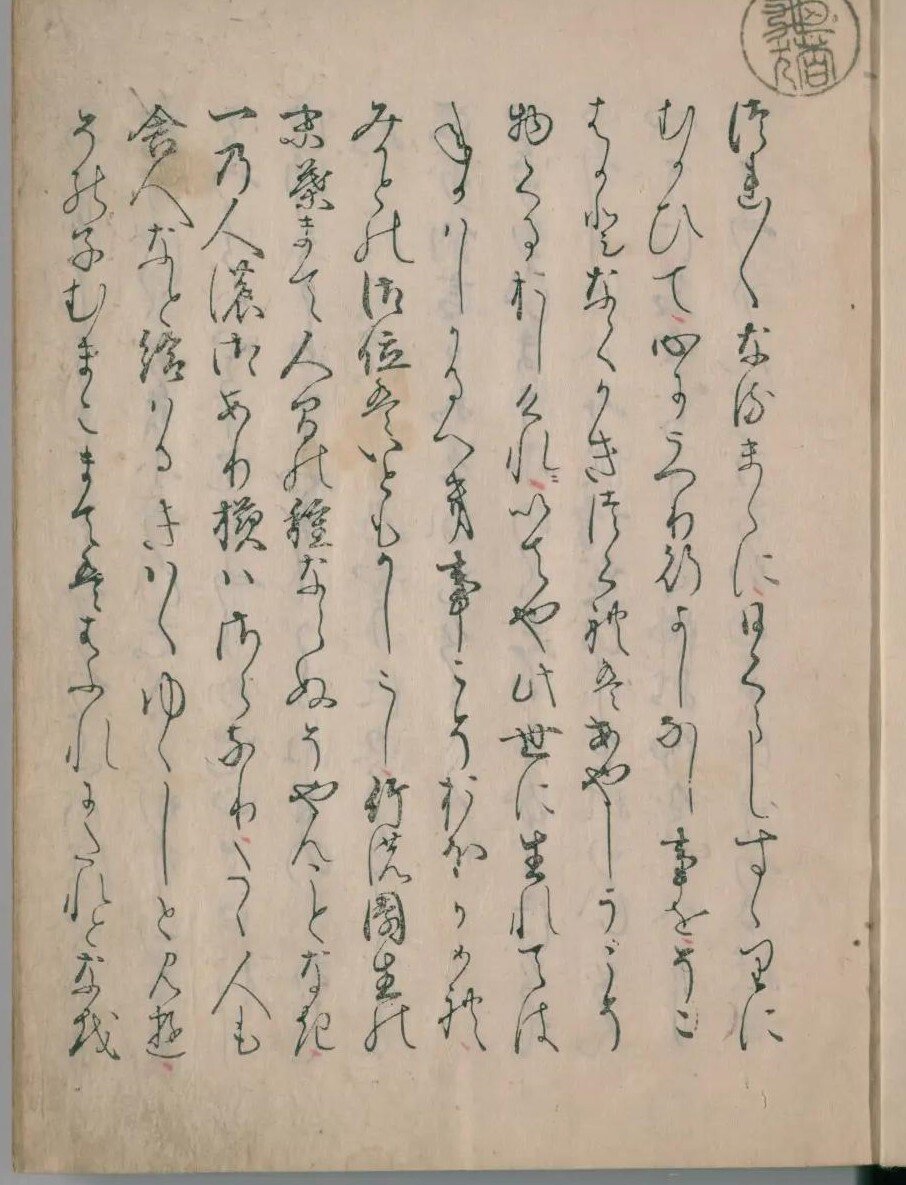 つれ〱なるまゝに日くらしすゝりに
むかひて心にうつり行よしなし事をそこ
はかとなくかきつくれはあやしうこそ
物くるおしけれいてや此世に生れては
ねかはしかるへき事こそおほかめれ
みかとの御位はいともかしこし竹の園生の
末葉まて人間の種ならぬそやんことなき
一の人の御あり様はさらなりたゝ人も
舎人なと給はるきはゝゆゝしと見ゆ
その子むまこまてははふれにたれとなを